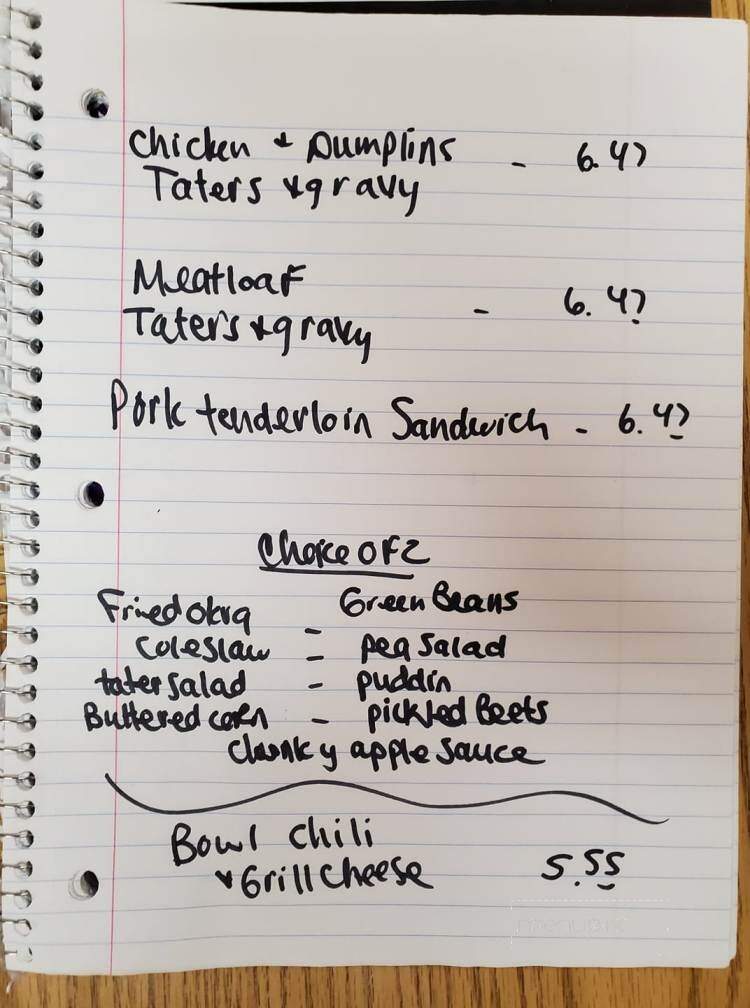 Chicken + Dumplins - 6.47
Taters + gravy
Meatloaf
Taters + gravy - 6.47
Pork tenderloin Sandwich - 6.47
Choice of 2
Fried okra - Green Beans
Coleslaw - pea salad
tater salad - puddin
Buttered corn - pickled Beets
Chunky apple sauce
Bowl Chili
+ Grill Cheese 5.55
menupix